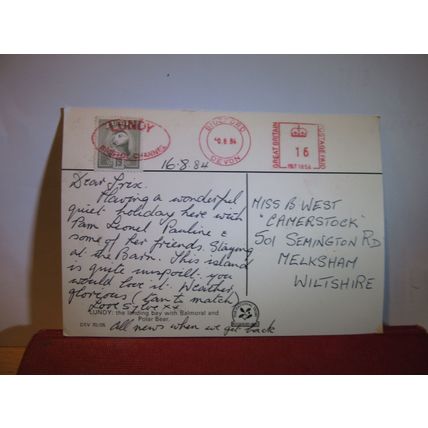 LUNDY
BRISTOL CHANNEL
BIDEFORD
DEVON
GREAT BRITAIN
POSTAGE PAID
16
16.8.84
Dear Trix.
Having a wonderful
quiet holiday here with
Pam Lionel Pauline &
some of her friends. Staying
at the Barn. This island
is quite unspoilt. you
would love it. Weather
glorious (tan to match
Love Sylve xx
All news when we get back
MISS B WEST
"CAMERSTOCK"
501 SEMINGTON RD
MELKSHAM
WILTSHIRE
LUNDY: the landing bay with Balmoral and
Polar Bear.